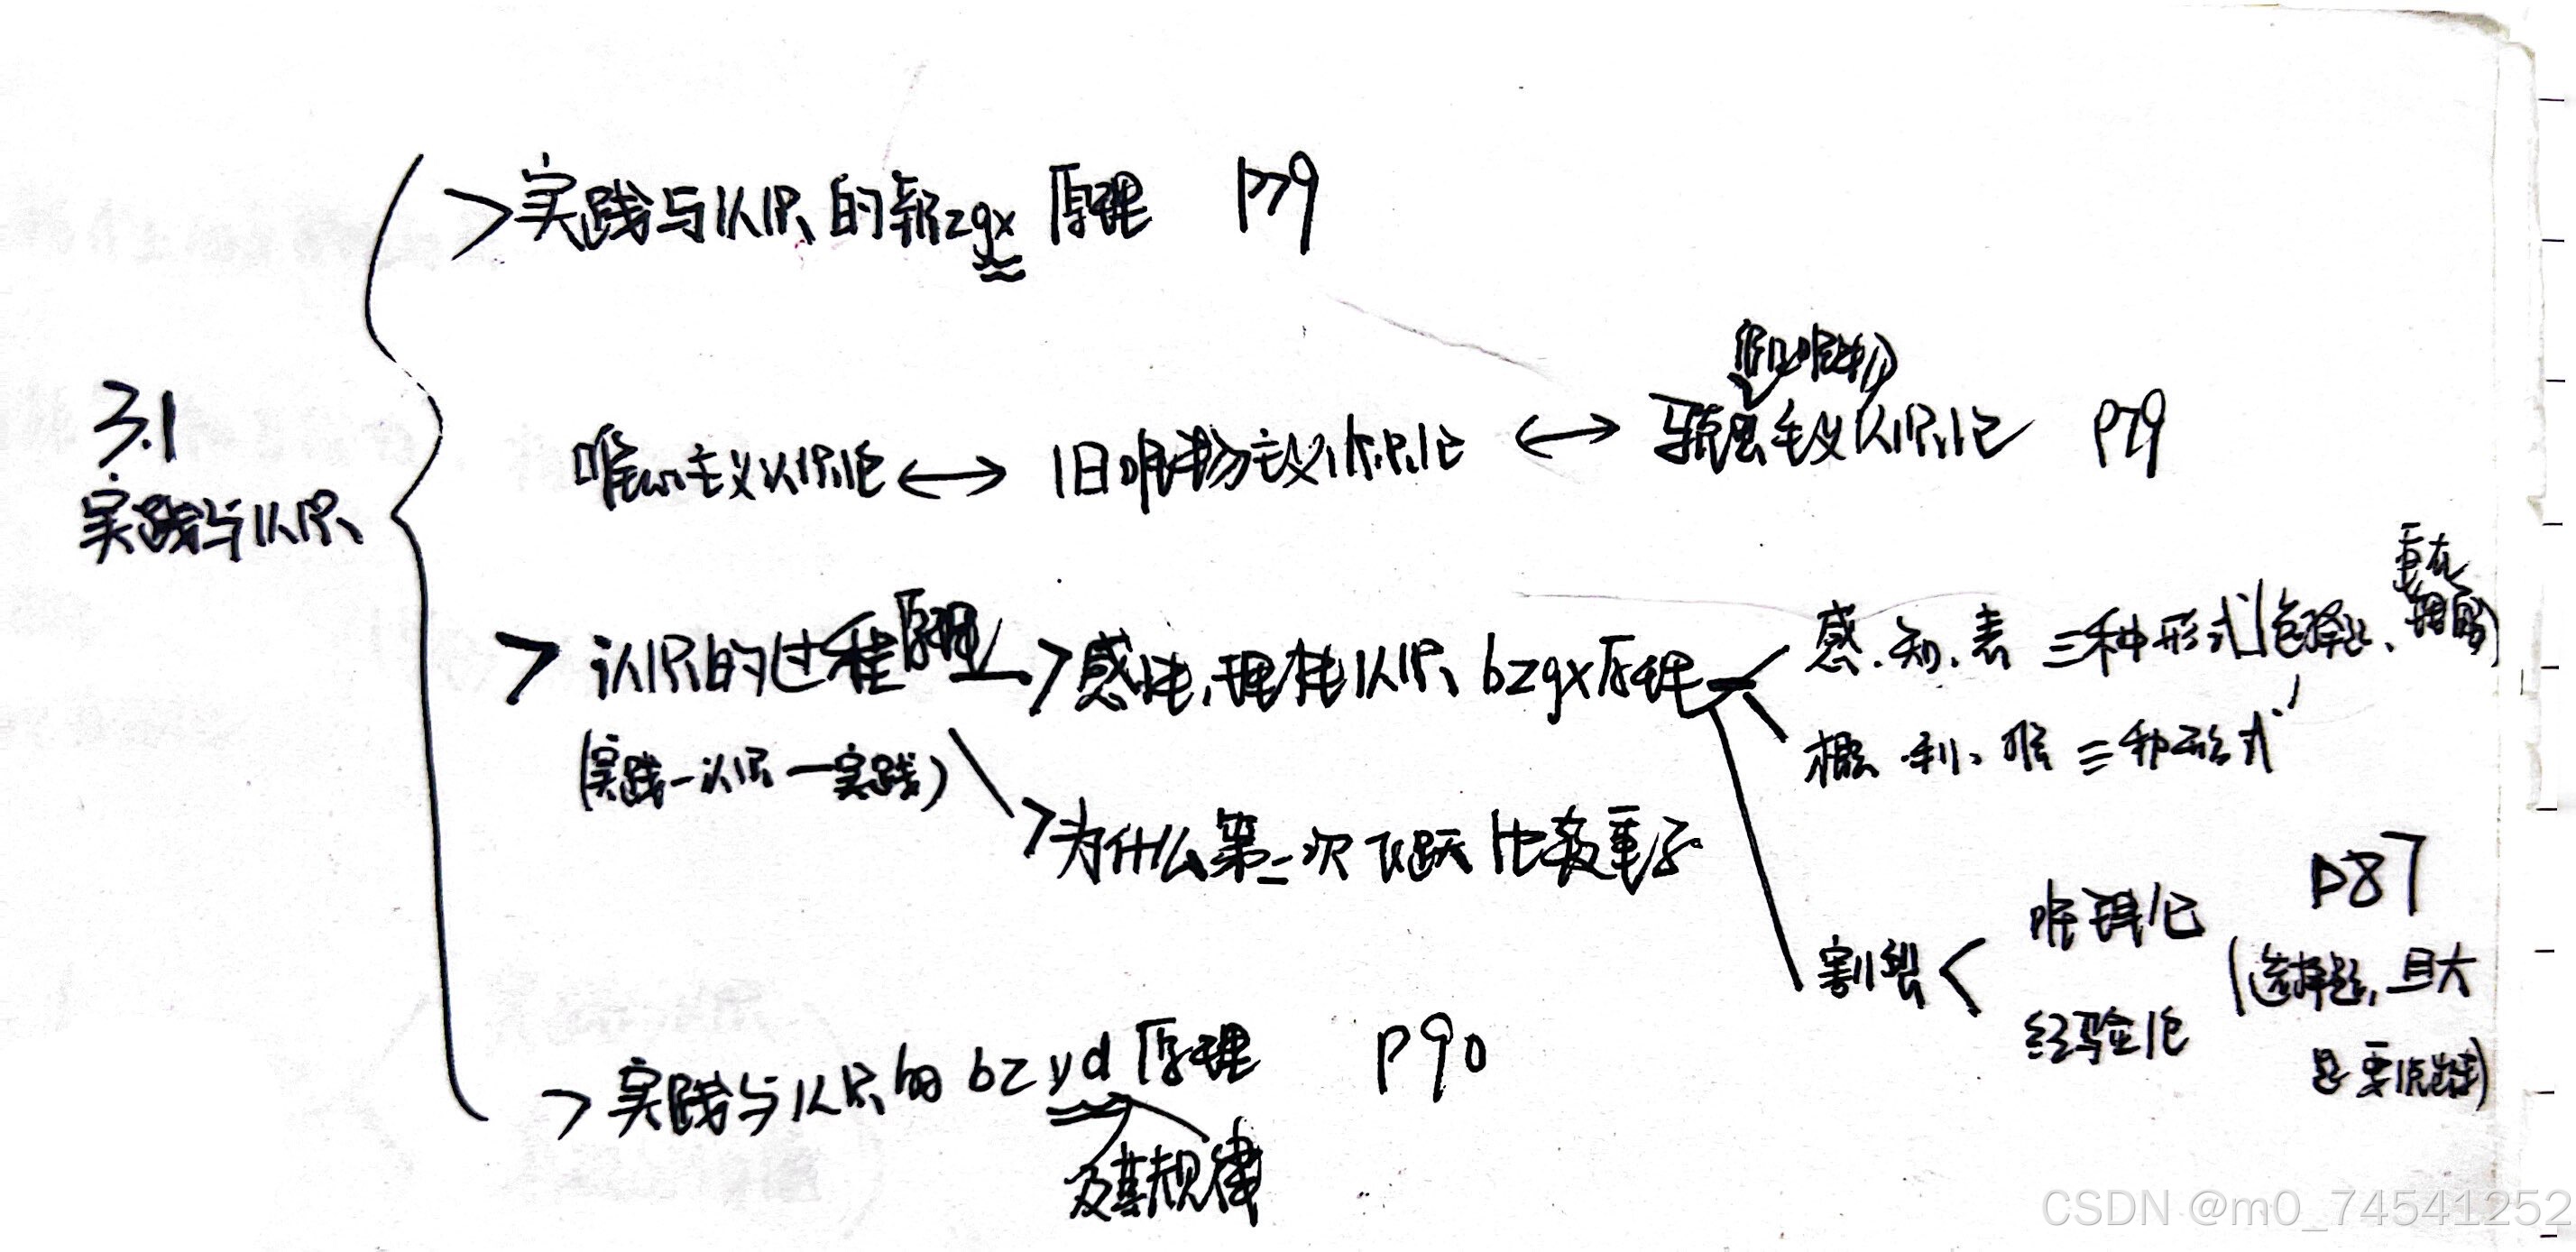 3.1
实践与认识
>实践与认识的 zgx 原理 P79
唯心主义认识论 ⟷ 旧唯物主义认识论 ⟷ 主义认识论 P79
> 认识的过程原理
(实践-认识-实践)
>感性、理性认识 bzgx 原理
感、知、表 三种形式 选择、重在理解)
概、判、推 三种形式
>为什么第二次飞跃比较重要
割裂
唯理论
经验论
P87
(选择题,且大
题要)
>实践与认识的 bzyd 原理 P90
及其规律
CSDN @m0_74541252